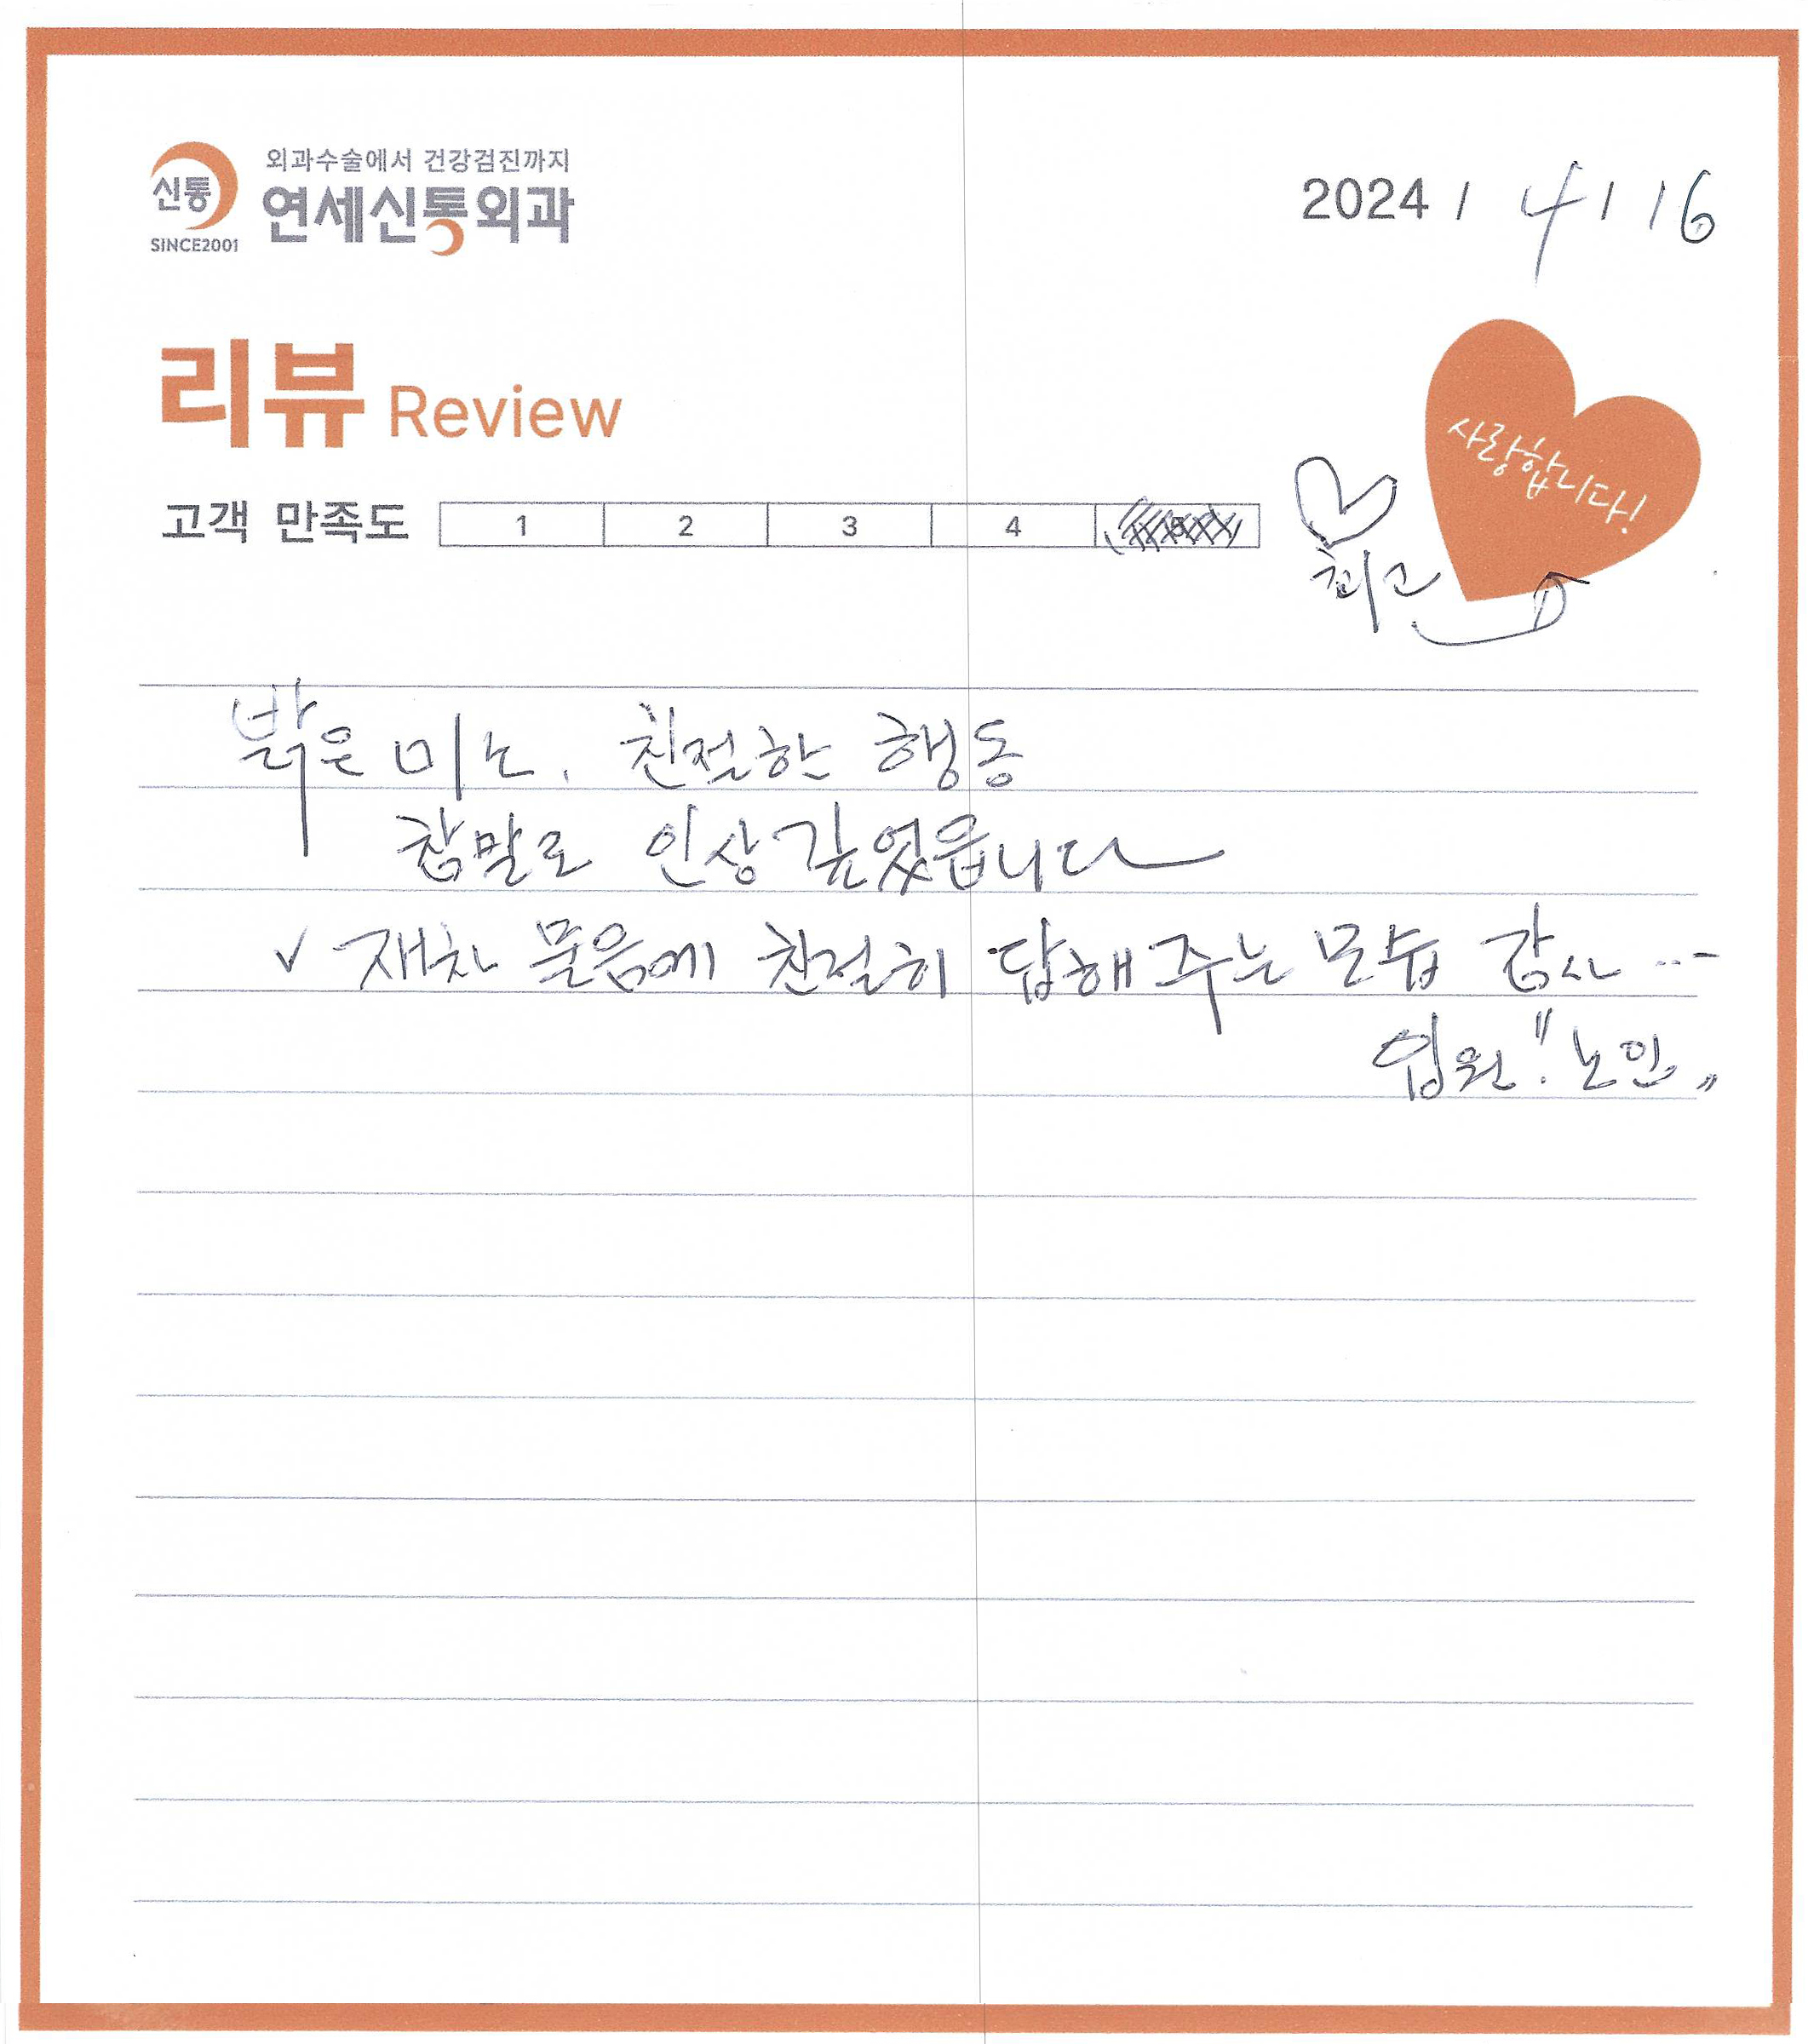 외과수술에서 건강검진까지
신통 연세신통외과
SINCE2001
2024 / 4 / 16
리뷰 Review
사랑합니다!
고객 만족도 1 2 3 4 5
최고
밝은 미소, 친절한 행동
참말로 인상깊었읍니다
✓ 재차 물음에 친절히 답해주는 모습 감사...
입원! "노인"